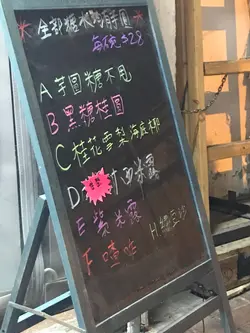 全部糖水
每碗$28
A 芋圓糖不甩
B 黑糖桂圓
C 桂花雪梨海底椰
D 西米露
E 紫米露
F 喳咋
H 綠豆沙